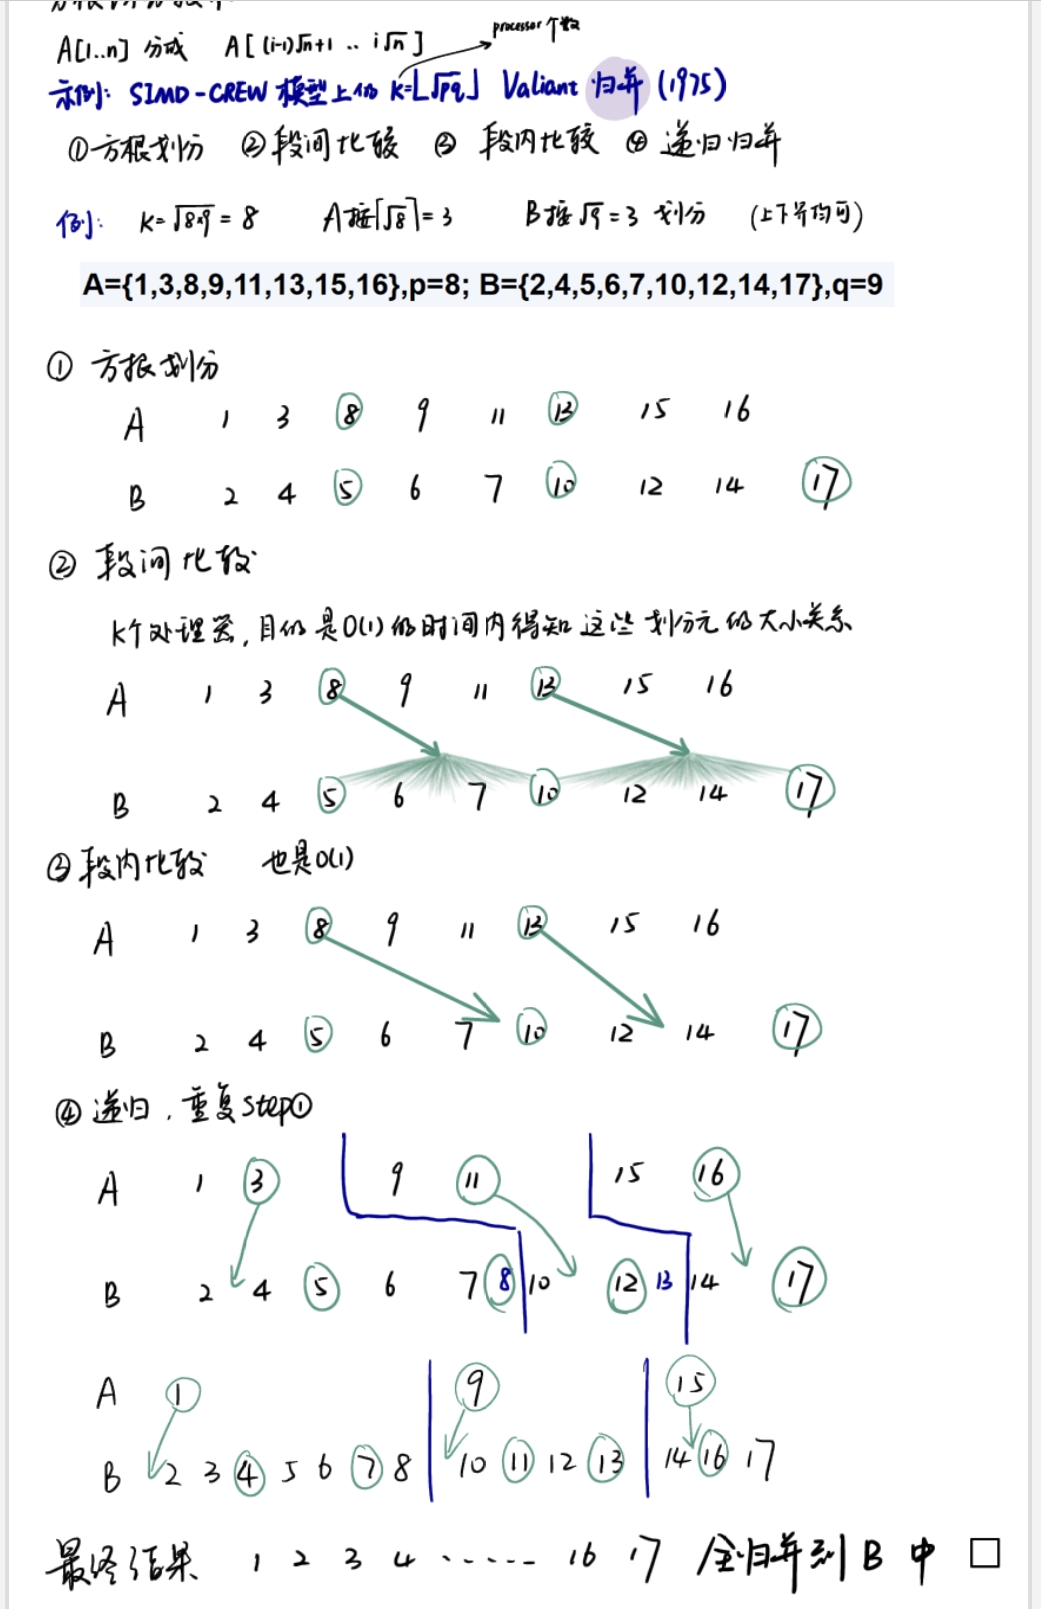 A[1..n] 分成 A[(i-1)√n+1 .. i√n] processor 个数
示例: SIMD-CREW 模型上的 k=⌊√pq⌋ Valiant 归并 (1975)
①方根划分 ②段间比较 ③ 段内比较 ④ 递归归并
例: K=√8*9 = 8 A按⌈√8⌉=3 B按√9=3 划分 (上下界均可)
A={1,3,8,9,11,13,15,16},p=8; B={2,4,5,6,7,10,12,14,17},q=9
① 方根划分
A 1 3 8 9 11 13 15 16
B 2 4 5 6 7 10 12 14 17
② 段间比较
K个处理器,目的是O(1)的时间内得知这些划分元的大小关系
A 1 3 8 9 11 13 15 16
B 2 4 5 6 7 10 12 14 17
③段内比较 也是O(1)
A 1 3 8 9 11 13 15 16
B 2 4 5 6 7 10 12 14 17
④递归,重复step①
A 1 3 9 11 15 16
B 2 4 5 6 7 8 10 12 13 14 17
A 1 9 15
B 2 3 4 5 6 7 8 10 11 12 13 14 16 17
最终结果 1 2 3 4 ...... 16 17 全归并到B中 □